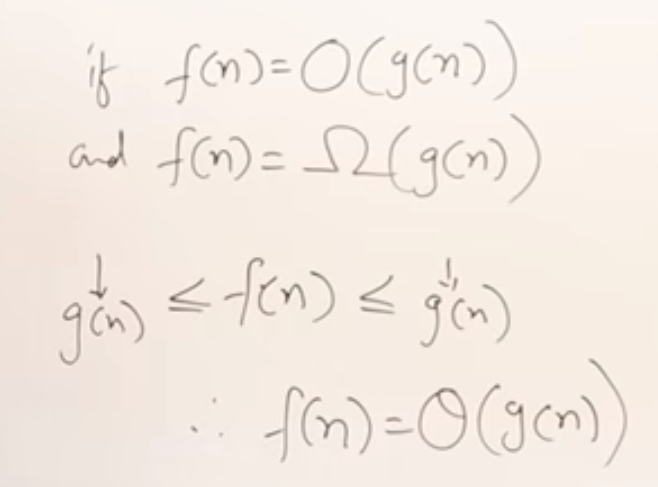 if f(n)=O(g(n))
and f(n)=Ω(g(n))
g(n) ≤ f(n) ≤ g(n)
∴ f(n)=Θ(g(n))